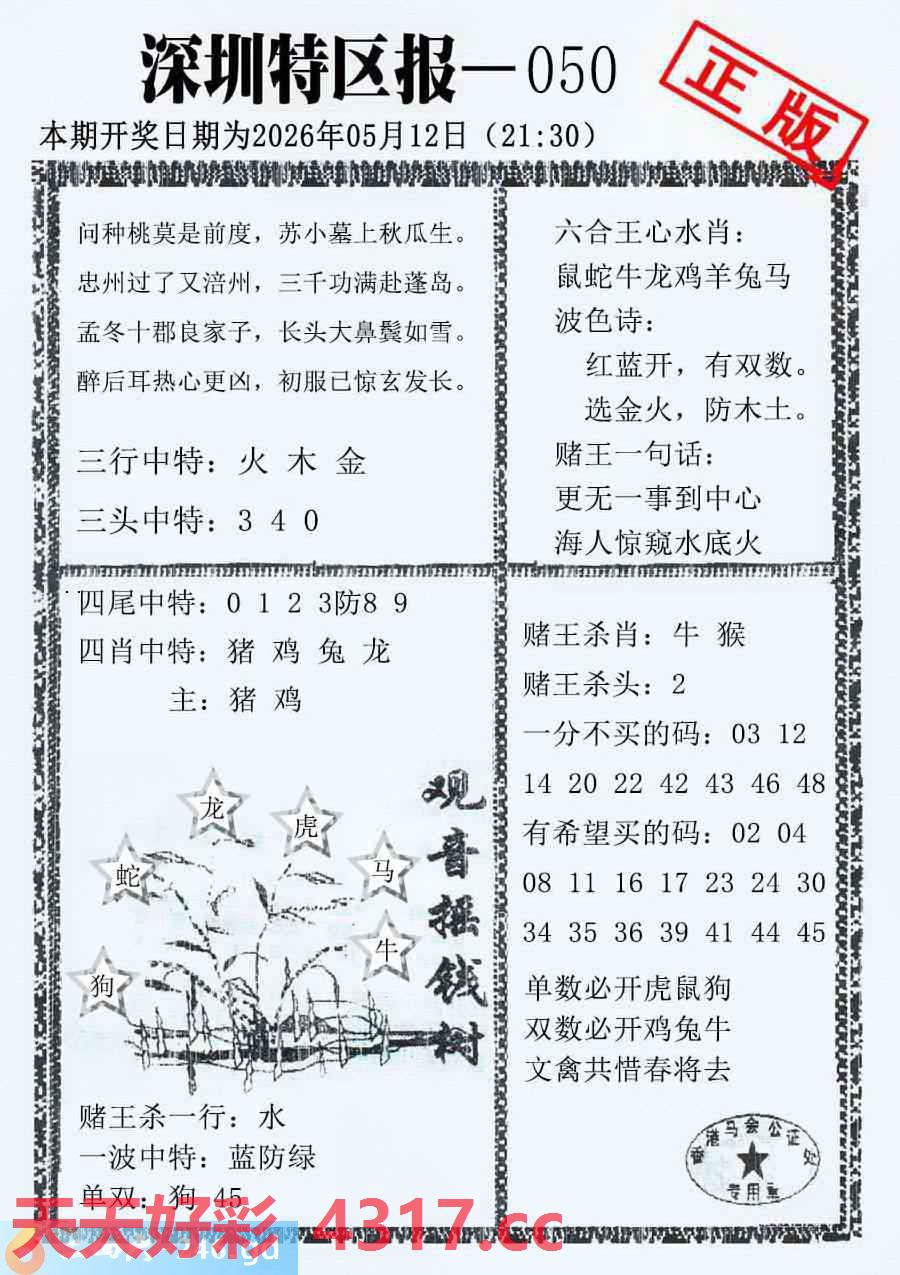 深圳特区报—050
正版
本期开奖日期为2026年05月12日（21:30）
问种桃莫是前度，苏小墓上秋瓜生。
忠州过了又涪州，三千功满赴蓬岛。
孟冬十郡良家子，长头大鼻鬓如雪。
醉后耳热心更凶，初服已惊玄发长。
三行中特：火 木 金
三头中特：3 4 0
六合王心水肖：
鼠蛇牛龙鸡羊兔马
波色诗：
红蓝开，有双数。
选金火，防木土。
赌王一句话：
更无一事到中心
海人惊窥水底火
四尾中特：0 1 2 3防8 9
四肖中特：猪 鸡 兔 龙
主：猪 鸡
龙
虎
蛇
马
牛
狗
观音摇钱树
赌王杀一行：水
一波中特：蓝防绿
单双：狗 45
赌王杀肖：牛 猴
赌王杀头：2
一分不买的码：03 12
14 20 22 42 43 46 48
有希望买的码：02 04
08 11 16 17 23 24 30
34 35 36 39 41 44 45
单数必开虎鼠狗
双数必开鸡兔牛
文禽共惜春将去
香港马会公证处
专用章
天天好彩 4317.cc